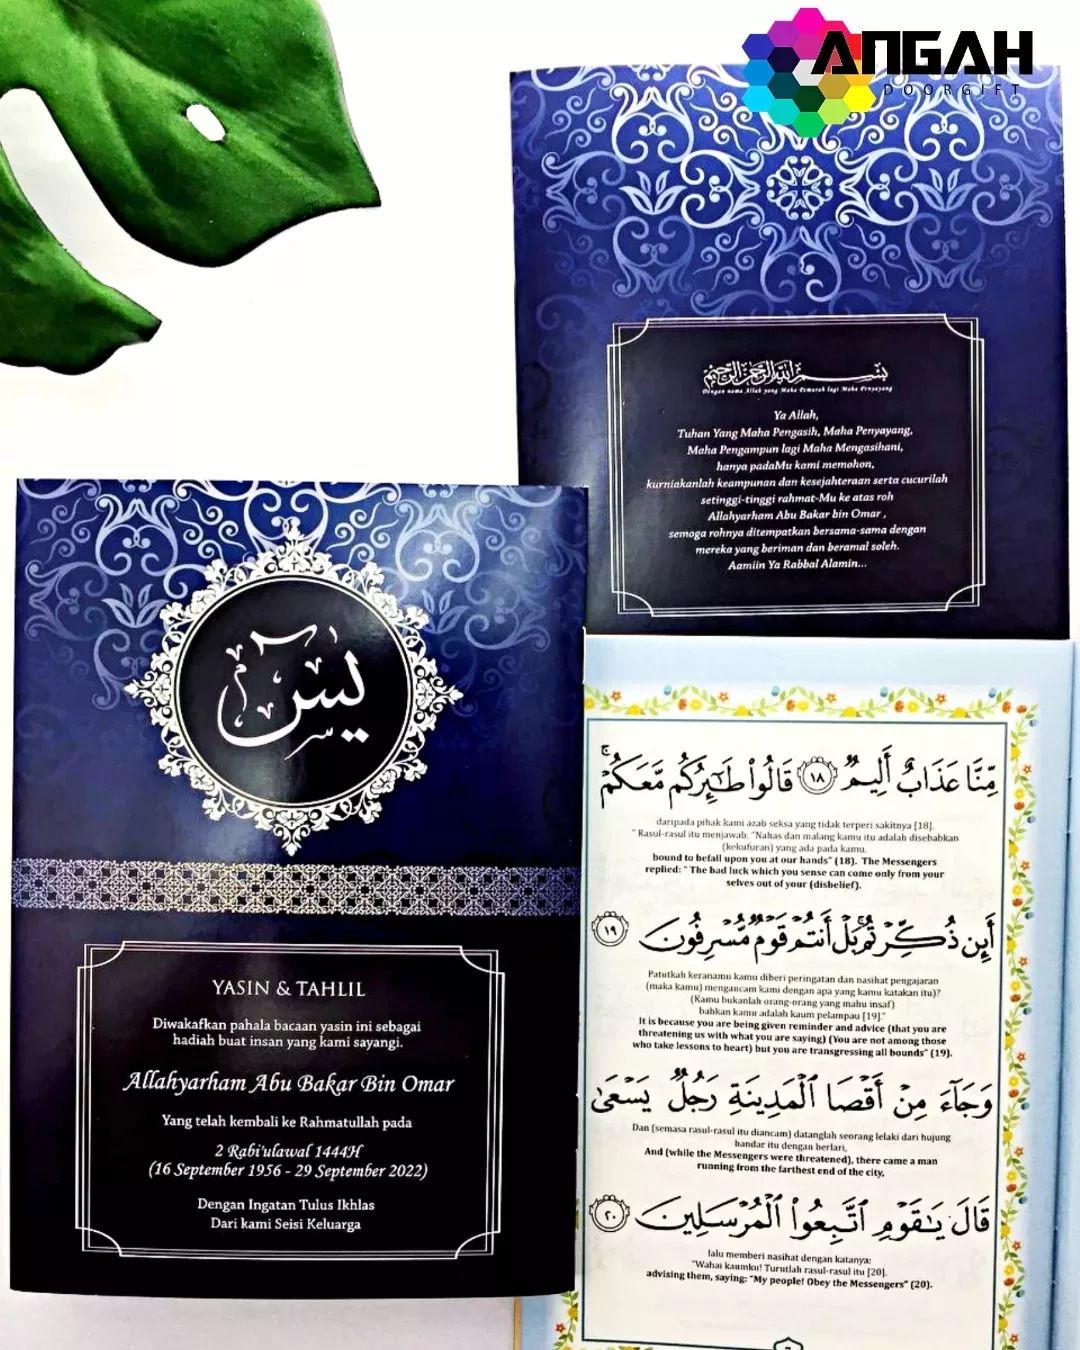 ANGAH
DOORGIFT
بسم الله الرحمن الرحيم
Dengan nama Allah yang Maha Pemurah lagi Maha Penyayang
Ya Allah,
Tuhan Yang Maha Pengasih, Maha Penyayang,
Maha Pengampun lagi Maha Mengasihani,
hanya padaMu kami memohon,
kurniakanlah keampunan dan kesejahteraan serta cucurilah
setinggi-tinggi rahmat-Mu ke atas roh
Allahyarham Abu Bakar bin Omar ,
semoga rohnya ditempatkan bersama-sama dengan
mereka yang beriman dan beramal soleh.
Aamiin Ya Rabbal Alamin...
يس
YASIN & TAHLIL
Diwakafkan pahala bacaan yasin ini sebagai
hadiah buat insan yang kami sayangi.
Allahyarham Abu Bakar Bin Omar
Yang telah kembali ke Rahmatullah pada
2 Rabi'ulawal 1444H
(16 September 1956 - 29 September 2022)
Dengan Ingatan Tulus Ikhlas
Dari kami Seisi Keluarga
مِّنَّا عَذَابٌ أَلِيمٌ ١٨ قَالُوا۟ طَـٰٓئِرُكُم مَّعَكُمْ ۚ
daripada pihak kami azab seksa yang tidak terperi sakitnya [18].
" Rasul-rasul itu menjawab: "Nahas dan malang kamu itu adalah disebabkan
(kekufuran) yang ada pada kamu.
bound to befall upon you at our hands" (18). The Messengers
replied: " The bad luck which you sense can come only from your
selves out of your (disbelief).
أَئِن ذُكِّرْتُم ۚ بَلْ أَنتُمْ قَوْمٌ مُّسْرِفُونَ ١٩
Patutkah keranamu kamu diberi peringatan dan nasihat pengajaran
(maka kamu) mengancam kami dengan apa yang kamu katakan itu)?
(Kamu bukanlah orang-orang yang mahu insaf)
bahkan kamu adalah kaum pelampau [19]."
It is because you are being given reminder and advice (that you are
threatening us with what you are saying) (You are not among those
who take lessons to heart) but you are transgressing all bounds" (19).
وَجَآءَ مِنْ أَقْصَا ٱلْمَدِينَةِ رَجُلٌ يَسْعَىٰ
Dan (semasa rasul-rasul itu diancam) datanglah seorang lelaki dari hujung
bandar itu dengan berlari,
And (while the Messengers were threatened), there came a man
running from the farthest end of the city,
قَالَ يَـٰقَوْمِ ٱتَّبِعُوا۟ ٱلْمُرْسَلِينَ ٢٠
lalu memberi nasihat dengan katanya:
"Wahai kaumku! Turutlah rasul-rasul itu [20].
advising them, saying: "My people! Obey the Messengers" (20).